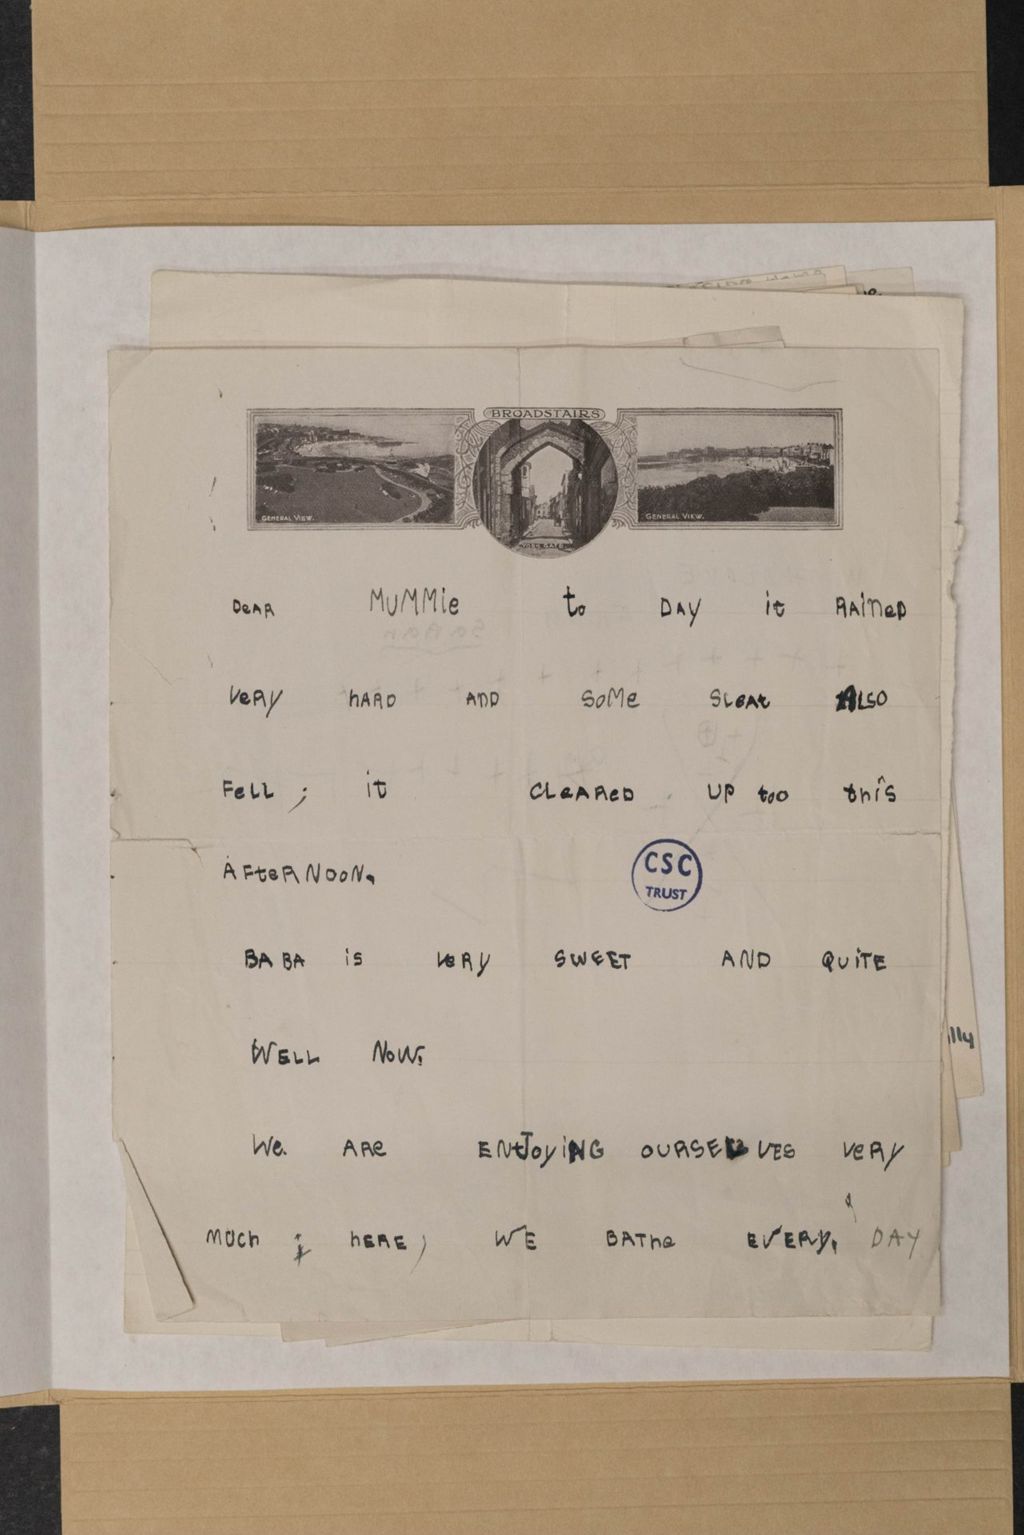 BROADSTAIRS
GENERAL VIEW.
YORK GATE.
GENERAL VIEW.
DeAR MuMMie to DAY it RAineD
VeRy hARD AnD SoMe SLeAt ALSO
FeLL ; it CLeAReD UP too this
AFteRNOoN.
CSC
TRUST
BABA iS VeRy SWEET AND QUiTE
WELL NoW.
We. ARe ENtJoyiNG OURSELVES VeRy
MUCh ; hERE ; WE BAThe EVERy, DAy
lly